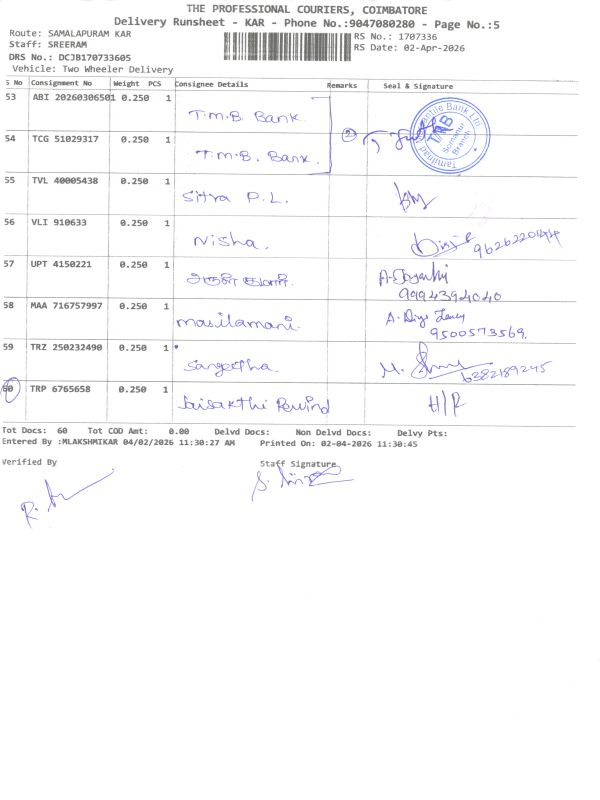 THE PROFESSIONAL COURIERS, COIMBATORE
Delivery Runsheet - KAR - Phone No.:9047080280 - Page No.:5
Route: SAMALAPURAM KAR
RS No.: 1707336
Staff: SREERAM
RS Date: 02-Apr-2026
DRS No.: DCJB170733605
Vehicle: Two Wheeler Delivery
S No Consignment No Weight PCS Consignee Details Remarks Seal & Signature
53 ABI 20260306501 0.250 1 T.M.B Bank.
54 TCG 51029317 0.250 1 T.M.B. Bank. 2
Tamilnad Mercantile Bank Ltd
TMB
Somanur
Branch
55 TVL 40005438 0.250 1 Sitra P.L.
56 VLI 910633 0.250 1 Nisha.
57 UPT 4150221 0.250 1
9994394040
58 MAA 716757997 0.250 1 masilamani.
9500573569.
59 TRZ 250232490 0.250 1 Sangeetha.
6382189245
60 TRP 6765658 0.250 1 Jaisakthi Rewind H/R
Tot Docs: 60 Tot COD Amt: 0.00 Delvd Docs: Non Delvd Docs: Delvy Pts:
Entered By :MLAKSHMIKAR 04/02/2026 11:30:27 AM Printed On: 02-04-2026 11:30:45
Verified By Staff Signature